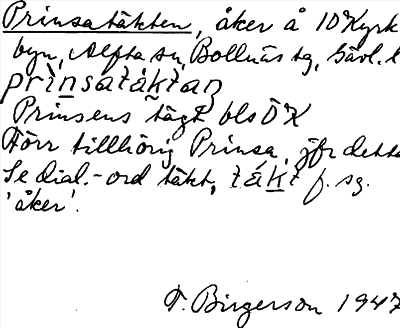 Prinsatäkten, åker å 10 Kyrk
byn, Alfta sn, Bollnäs tg, Gävl. l
prìnsatáktan
Prinsens tägt bls Ö K
Förr tillhörig Prinsa, jfr detta
Se dial.-ord täkt, tákt f. sg.
'åker'.
F. Birgerson 1947